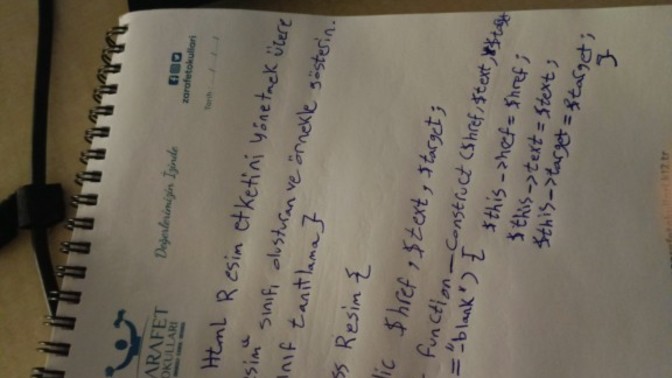 zarafetokullari
Tarih: .../.../...
Değerlerimizin İzinde
ARAFET
OKULLARI
Html Resim etketini yönetmek üzere
sınıfı oluşturan ve örnekle gösterin.
tanıtlama}
Resim {
$href, $text, $target;
function __construct ($href, $text,
="-blank") { $this->href = $href;
$this->text = $text;
$this->target = $target;
}